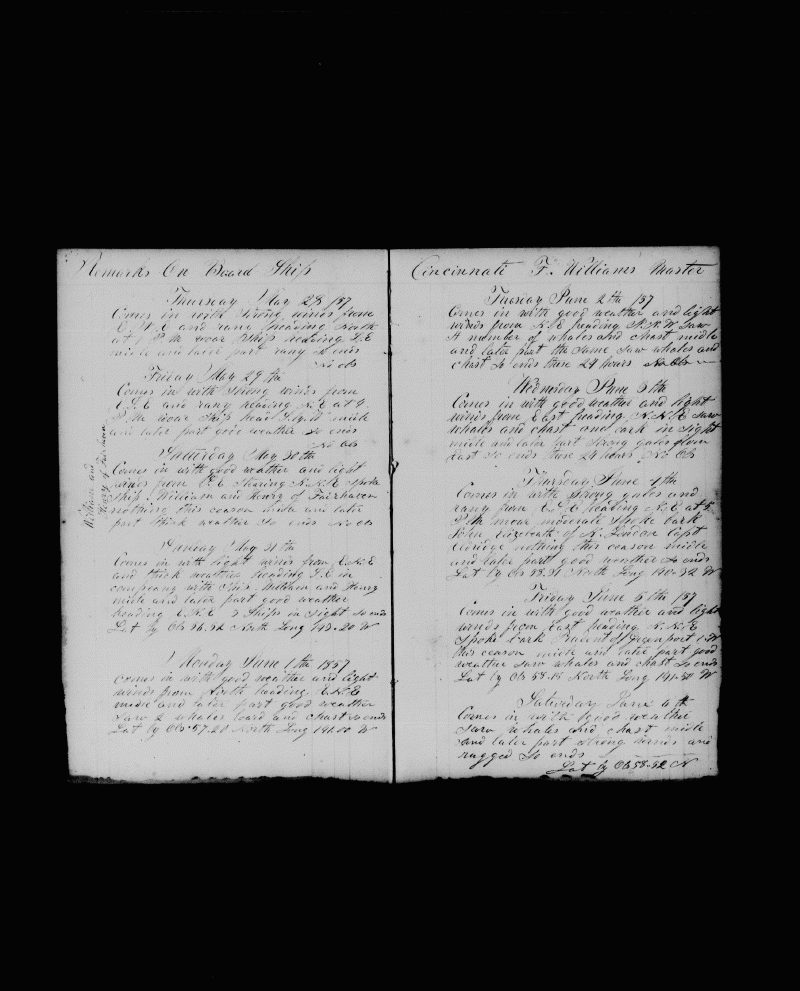 Remarks On Board Ship
Thursday May 28 /57
Comes in with Strong winds from
E and heading North
at P M wore Ship heading S.E
midle and later part so ends
No obs
Friday May 29 th
Comes in with Strong winds from
E.S.E and heading N.E at
P M wore Ship head midle
and later part good weather So ends
No obs
Satterday May 30 th
Comes in with good weather and light
winds from Stearing N.N.E Spoke
Ship William and Henry of Fairhaven
nothing this season midle and later
part thick weather So ends No obs
William and
Henry of Fairhaven
Sunday May 31 th
Comes in with light winds from E.N.E
and thick weather heading S.E in
company with Ship William and Henry
midle and later part good weather
heading E.N.E 2 Ships in sight So ends
Lat by Ob 56.54 North Long 143-20 W
Monday June 1 th 1857
Comes in with good weather and light
winds from North heading E.N.E
midle and later part good weather
Saw 2 whales loard and chast so ends
Lat by Ob 57-21 North Long 141.00 W
Cincinnati F. Williams Master
Tuesday June 2 th /57
Comes in with good weather and light
winds from N.E heading N.N.W Saw
A number of whales and chast midle
and later part the same Saw whales and
chast So ends these 24 hours No Obs
Wednesday June 3 th
Comes in with good weather and light
winds from East heading N.N.E Saw
whales and chast one bark in sight
midle and later part Strong gales from
East So ends these 24 hours No Ob
Thursday June 4 th
Comes in with Strong gales and
from heading N.E at 5
P M more moderate Spoke bark
John of N. London Capt
nothing this season midle
and later part good weather So ends
Lat by Ob 58.31 North Long 140-32 W
Friday June 5 th /57
Comes in with good weather and light
winds from East heading N.N.E
Spoke bark
this season midle and later part good
weather Saw whales and chast So ends
Lat by Ob 58-15 North Long 141-30 W
Saturday June 6 th
Comes in with good weather
Saw whales and chast midle
and later part strong winds and
rugged So ends
Lat by Ob 58-52 N